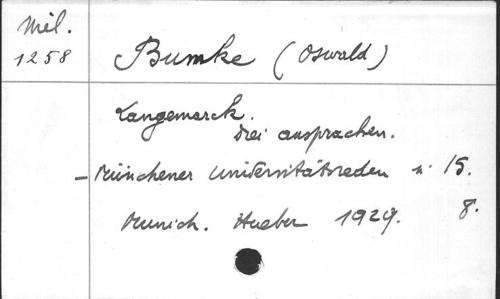 Mél.
1258
Bumke (Oswald)
Langemarck.
Drei ansprachen.
– Münchener Universitätsreden n: 15.
Munich. Hueber 1929. 8.